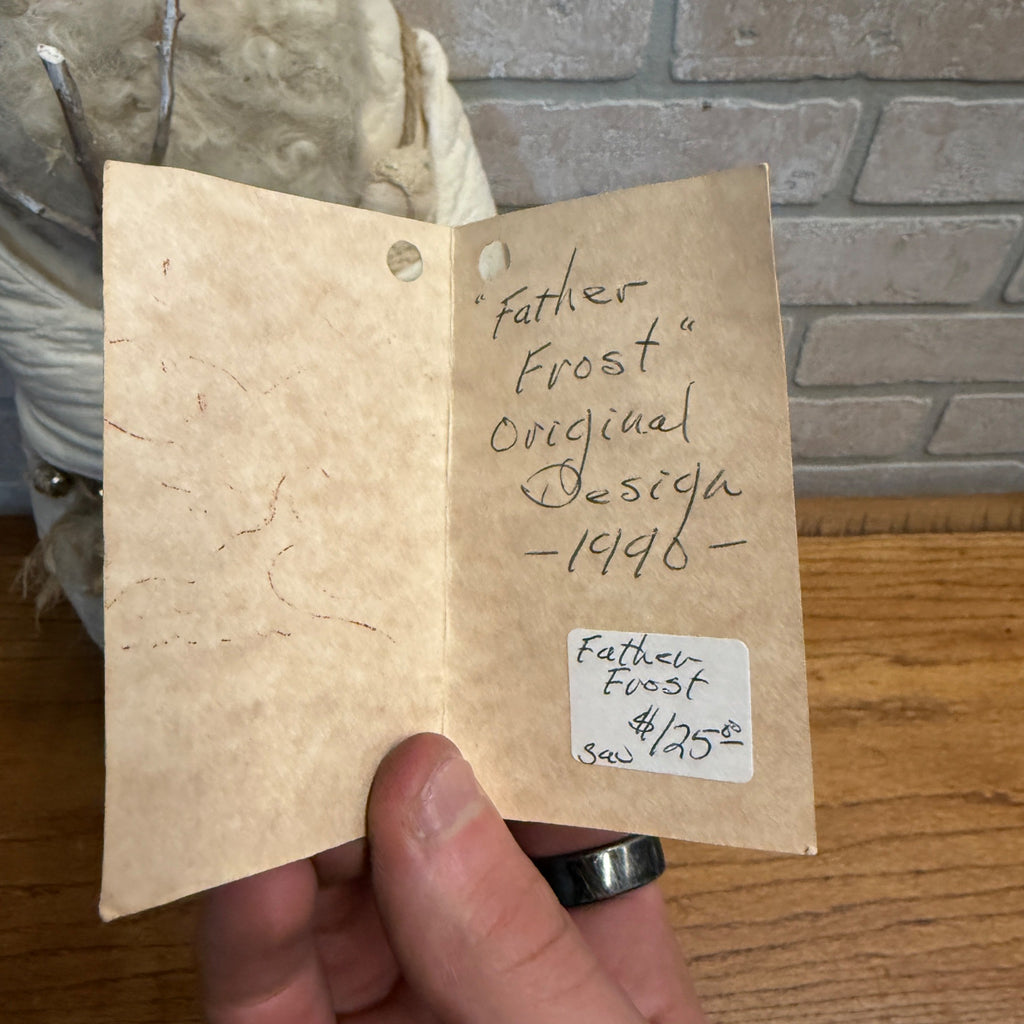 "Father
Frost"
Original
Design
-1990-
Father
Frost
$125.00